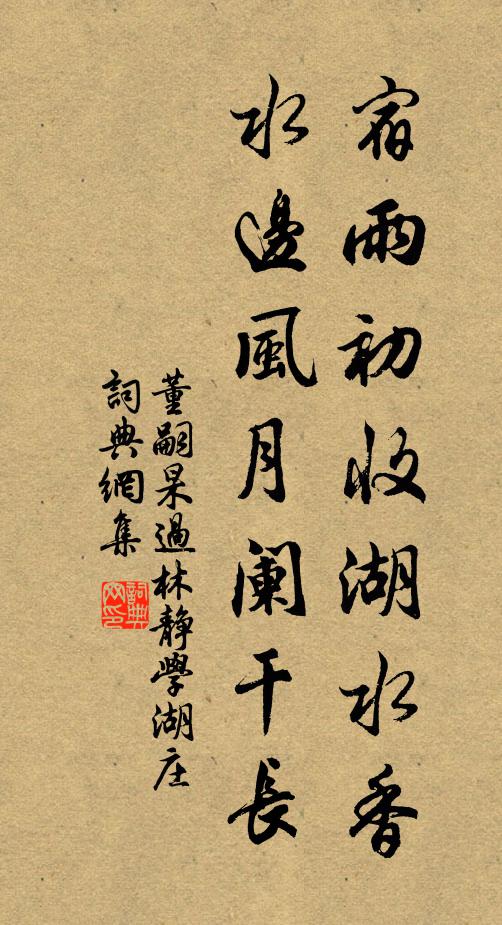 宿雨初收湖水香
水邊風月闌干長
董嗣杲過林靜學湖庄
詞典網集
詞典网印